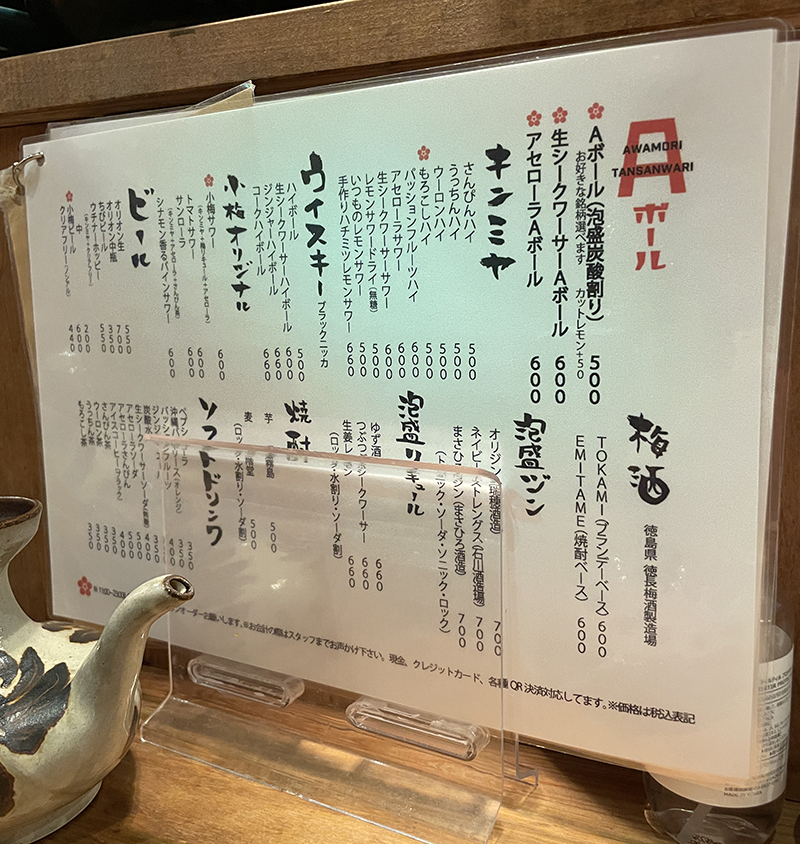 A
AWAMORI
TANSANWARI
ボール
Aボール(泡盛炭酸割り) 500
お好きな銘柄選べます カットレモン+50
生シークワーサーAボール 600
アセローラAボール 600
キンミヤ
さんぴんハイ 500
うっちんハイ 500
ウーロンハイ 500
もろこしハイ 500
パッションフルーツハイ 600
アセローラサワー 600
生シークワーサーサワー 600
レモンサワードライ(無糖) 500
いつものレモンサワー 500
手作りハチミツレモンサワー 660
ウイスキー ブラックニッカ
ハイボール 500
生シークワーサーハイボール 600
ジンジャーハイボール 660
コークハイボール 660
小梅オリジナル
小梅サワー 600
トマトサワー 600
サンローラ 600
シナモン香るパインサワー 600
ビール
オリオン生 550
オリオン中瓶 700
ちびビール 350
ウチナーホッピー 550
中 200
小梅ビール 600
クリアフリー 440
梅酒
徳島県 徳長梅酒製造場
TOKAMI(ブランデーベース) 600
EMITAME(焼酎ベース) 600
泡盛ジン
(瑞穂酒造) 700
ネイビーストレングス(石川酒造場) 700
(まさひろ酒造) 700
(トニック・ソーダ・ソニック・ロック)
泡盛リキュール
ゆず酒 660
シークワーサー 660
生姜レモン 660
(ロック・水割り・ソーダ割)
焼酎
芋 霧島 500
麦 500
(ロック・水割り・ソーダ割)
ソフトドリンク
350
350
350
炭酸水
生シークワーサーソーダ
アセローラソーダ
アセローラさんぴん
アイスコーヒー(ブラック)
さんぴん茶 350
ウーロン茶 350
うっちん茶 350
もろこし茶 350
オーダーお願いします。※お会計の際はスタッフまでお声かけ下さい。現金、クレジットカード、各種QR決済対応してます。※価格は税込表記